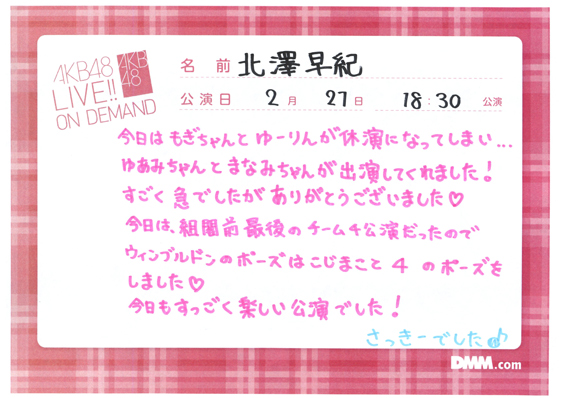 AKB48
LIVE!!
ON DEMAND
AKB
48
名 前 北澤早紀
公演日 2月 27日 18:30 公演
今日はもぎちゃんとゆーりんが休演になってしまい...
ゆあみちゃんとまなみちゃんが出演してくれました!
すごく急でしたがありがとうございました♡
今日は、組閣前最後のチーム4公演だったので
ウィンブルドンのポーズはこじまこと 4 のポーズを
しました♡
今日もすっごく楽しい公演でした!
さっきーでした♪
DMM.com